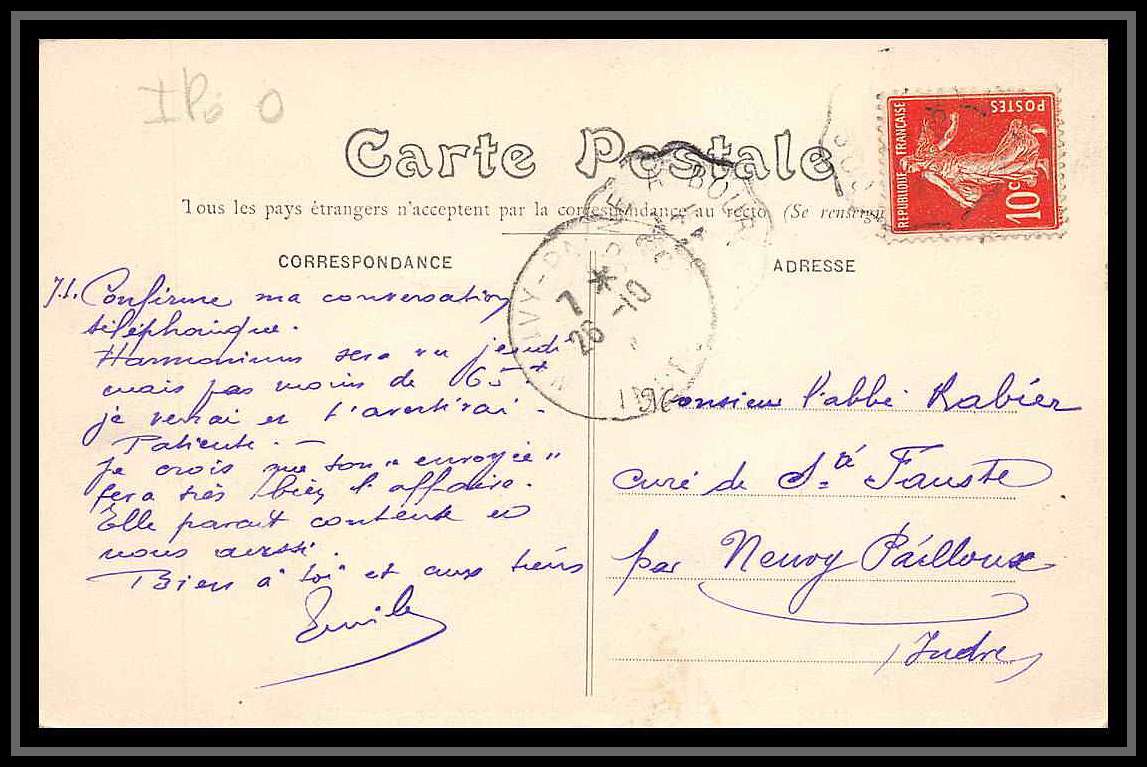 Carte Postale
Tous les pays étrangers n'acceptent pas la correspondance au recto (Se renseigner
CORRESPONDANCE
ADRESSE
REPUBLIQUE FRANÇAISE
POSTES
10c
7 *
26 -10
Confirme ma conversation
téléphonique.
Harmonium sera vu jeudi
mais pas moins de 65
je verrai et t'avertirai.
Patiente. —
Je crois que ton "envoyée"
fera très bien l'affaire.
Elle parait contente et
nous aussi.
Bien à toi et aux tiens
Emile
Monsieur l'abbé Rabier
curé de Ste Fauste
par Neuvy Pailloux
(Indre)